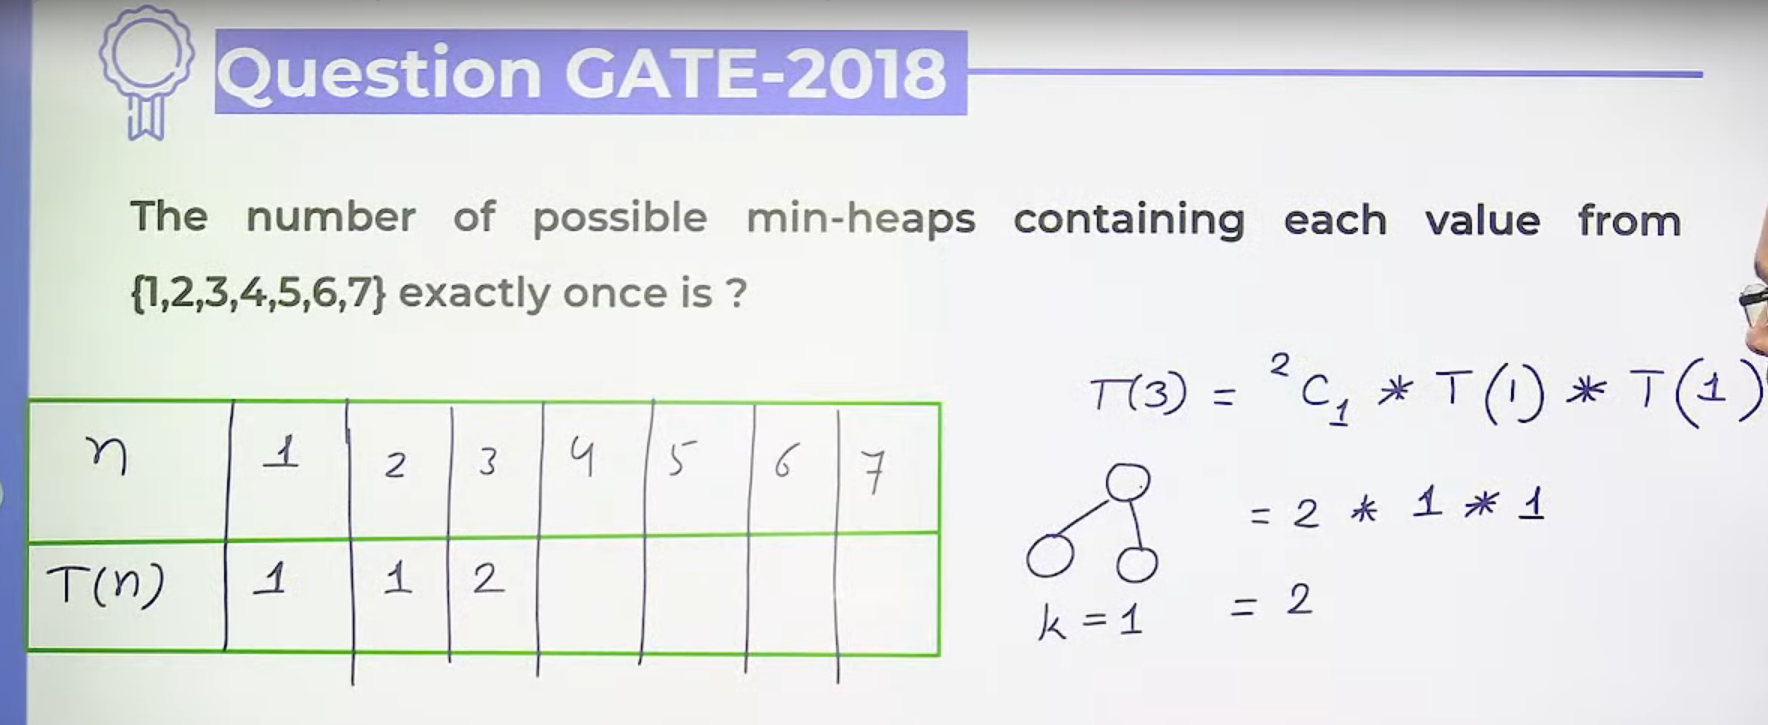 Question GATE-2018
The number of possible min-heaps containing each value from
{1,2,3,4,5,6,7} exactly once is ?
n 1 2 3 4 5 6 7
T(n) 1 1 2
T(3) = ²C₁ * T(1) * T(1)
= 2 * 1 * 1
k = 1 = 2